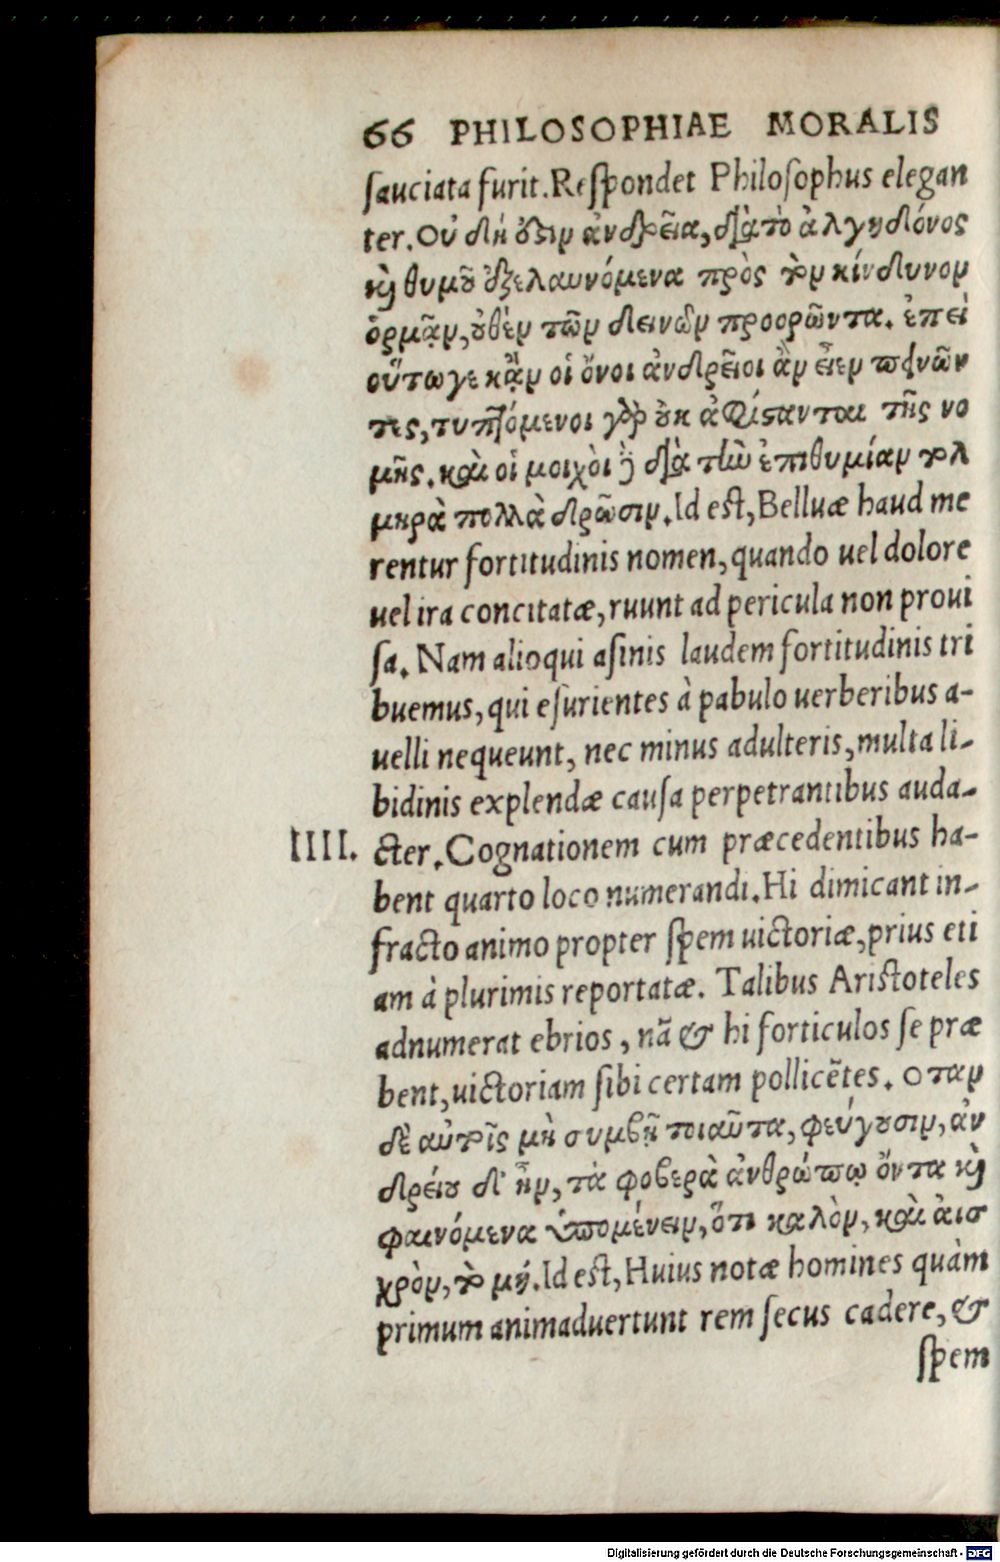 66 PHILOSOPHIAE MORALIS
ſauciata furit. Reſpondet Philoſophus elegan
ter. Οὐ δή ὅϛιν ἀνδρεῖα, διὰ τὸ ἀλγηδόνος
κὶ θυμοῦ ἐξελαυνόμενα πρὸς τὸν κίνδυνον
ὁρμᾷν, οὐθὲν τῶν δεινῶν προορῶντα. ἐπεὶ
οὕτωγε κᾂν οἱ ὄνοι ἀνδρεῖοι ἂν εἶεν πεινῶν
τες, τυπτόμενοι γὰρ οὐκ ἀφίϛανται τῆς νο
μῆς. καὶ οἱ μοιχὸι δὲ διὰ τὴν ἐπιθυμίαν τολ
μηρὰ πολλὰ δρῶσιν. Id eſt, Belluæ haud me
rentur fortitudinis nomen, quando uel dolore
uel ira concitatæ, ruunt ad pericula non proui
ſa. Nam alioqui aſinis laudem fortitudinis tri
buemus, qui eſurientes à pabulo uerberibus a-
uelli nequeunt, nec minus adulteris, multa li-
bidinis explendæ cauſa perpetrantibus auda-
IIII. cter. Cognationem cum præcedentibus ha-
bent quarto loco numerandi. Hi dimicant in-
fracto animo propter ſpem uictoriæ, prius eti
am à plurimis reportatæ. Talibus Ariſtoteles
adnumerat ebrios, nã & hi forticulos ſe præ
bent, uictoriam ſibi certam pollicẽtes. Οταν
δὲ αὐτοῖς μὴ συμβῇ τοιαῦτα, φεύγουσιν, ἀν
δρείου δ' ἦν, τὰ φοβερὰ ἀνθρώπῳ ὄντα κὶ
φαινόμενα ὑπομένειν, ὅτι καλὸν, καὶ αἰσ
χρὸν, τὸ μή. Id eſt, Huius notæ homines quàm
primum animaduertunt rem ſecus cadere, &
ſpem
Digitalisierung gefördert durch die Deutsche Forschungsgemeinschaft - DFG